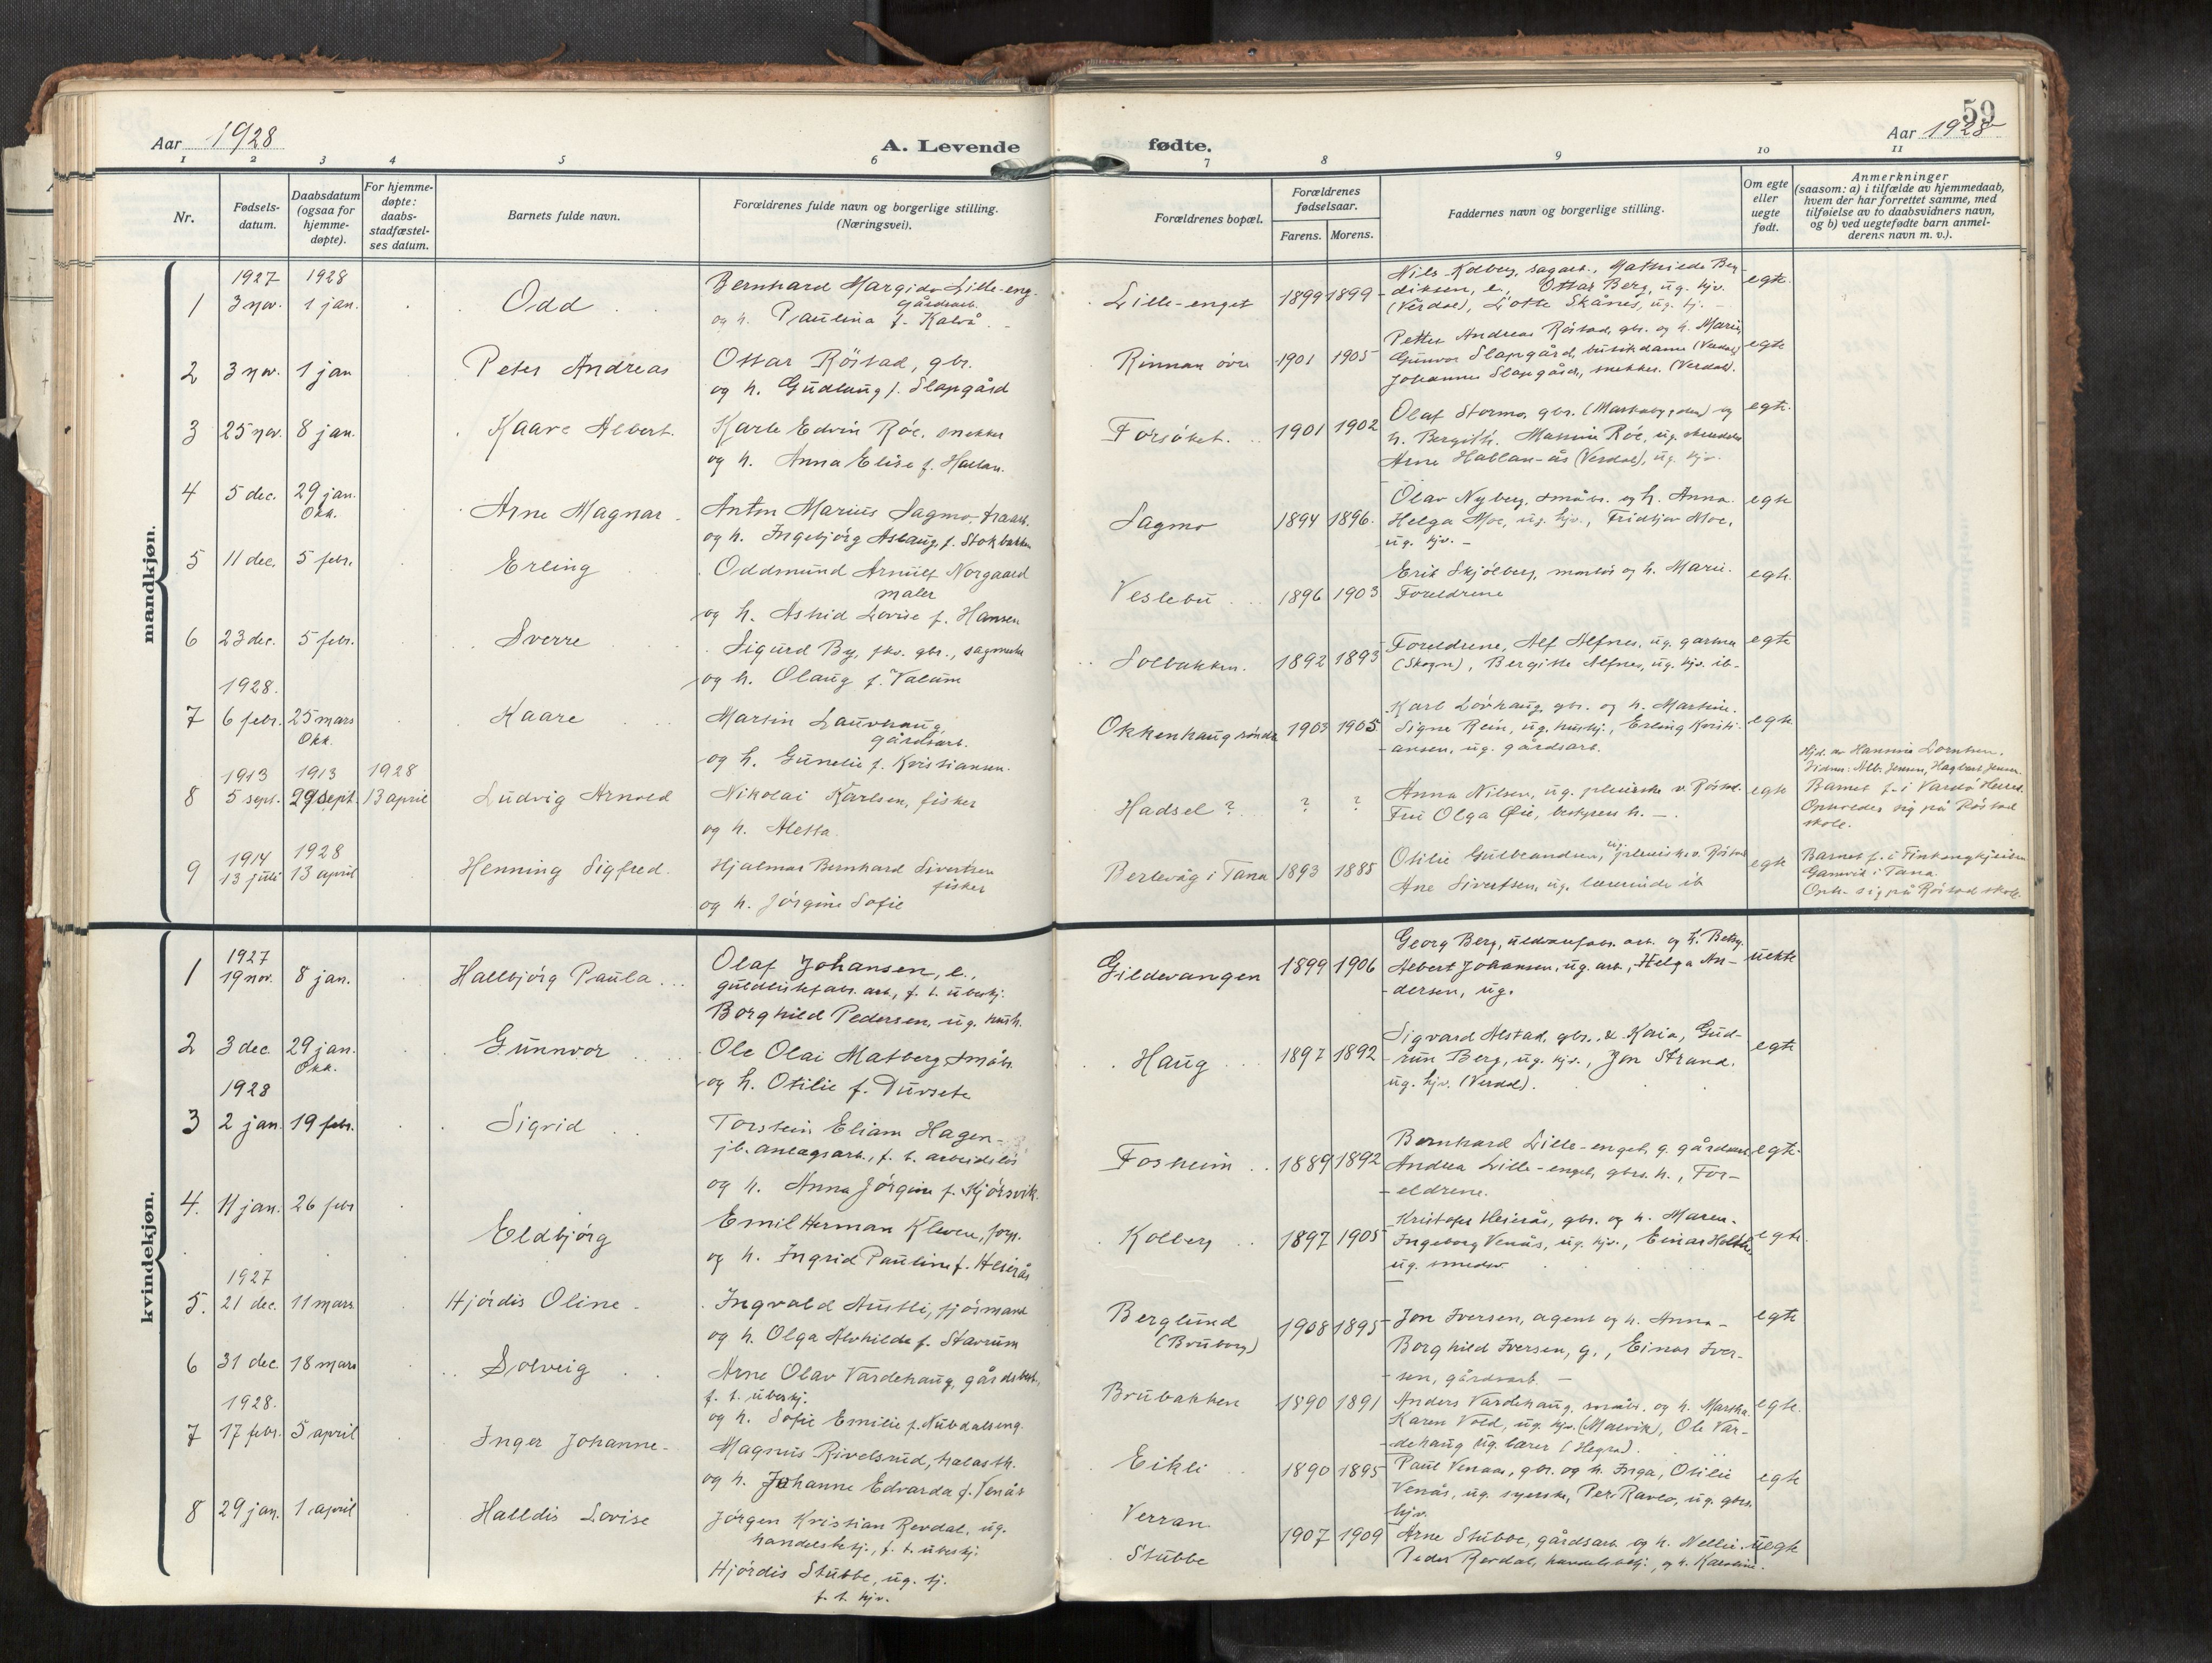 59
Aar 1928
A. Levende
fødte.
Aar 1928
1 2 3 4 5 6 7 8 9 10 11
Nr.
Fødsels-
datum.
Daabsdatum
(ogsaa for
hjemme-
døpte).
For hjemme-
døpte:
daabs-
stadfæstel-
ses datum.
Barnets fulde navn.
Forældrenes fulde navn og borgerlige stilling.
(Næringsvei).
Forældrenes bopæl.
Forældrenes
fødselsaar.
Farens. Morens.
Faddernes navn og borgerlige stilling.
Om egte
eller
uegte
født.
Anmerkninger
(saasom: a) i tilfælde av hjemmedaab,
hvem der har forrettet samme, med
tilføielse av to daabsvidners navn,
og b) ved uegtefødte barn anmel-
derens navn m. v.).
mandkjøn.
1927 1928
1 3 nov. 1 jan. Odd
Bernhard Margido Lille-eng.
gårdsarb.
og h. Paulina f. Kalvå.
Lille-enget 1899 1899
Nils Kolberg, sagarb., Mathilde Ben-
diksen, e., Ottar Berg, ug. hjv.
(Verdal), Lotte Skånes, ug. hj.
egte.
2 3 nov. 1 jan Peter Andreas
Ottar Röstad, gbr.
og h. Gudlaug f. Slapgård
Rinnan övre 1901 1905
Petter Andreas Röstad, gbr. og h. Marie,
Gunvor Slapgård, butikdame (Verdal)
Johannes Slapgård, snekker. (Verdal).
egte
3 25 nov. 8 jan. Kaare Albert.
Karle Edvin Röe, snekker
og h. Anna Elise f. Hallan.
Forsöket. 1901 1902
Olaf Stormo, gbr. (Markabygden) og
h. Bergith. Massine Röe, ug.
Arne Hallan-ås (Verdal), ug. hjv.
egte.
4 5 dec. 29 jan.
Okk.
Arne Magnar
Anton Marius Sagmo,
og h. Ingebjörg Aslaug f. Stokbakken
Sagmo 1894 1896.
Olav Nyberg, småbr. og h. Anna.
Helga Moe, ug. hjv., Fridtjov Moe,
ug. hjv. -
egte
5 11 dec. 5 febr. Erling
Oddmund Arnulf Norgaard
maler
og h. Astrid Lovise f. Hansen
Veslebu 1896 1903
Erik Skjölberg, og h. Marie.
Foreldrene
egte.
6 23 dec. 5 febr. Sverre
Sigurd By, fhv. gbr.,
og h. Olaug f. Valum
Solbakken. 1892 1893
Foreldrene, Alf Alfnes, ug.
(Skogn), Bergitte Alfnes, ug. hjv. ib-
egte
1928.
7 6 febr. 25 mars
Okk.
Kaare
Martin Lauvhaug,
gårdsarb.
og h. Gunelie f. Kristiansen.
Okkenhaug söndre 1903 1905
Karl Lövhaug, gbr. og h. Martine.
Signe Rein, ug. hushj., Erling Kristi-
ansen, ug. gårdsarb.
egte
1913 1913 1928
8 5 sept. 29 sept. 13 april Ludvig Arnold
Nikolai Karlsen, fisker
og h. Aletta.
Hadsel ? ? ?
Anna Nilsen, ug. pleierske v. Röstad.
Fru Olga Öie, bestyrers h. -.
egte
Hjd. av Hannie Lorntsen.
Vidner: Alb. Jensen, Hagbart Jensen.
Barnet f. i Vardö Herred.
Opholder sig på Röstad
skole.
1914 1928
9 13 juli 13 april Henning Sigfred.
Hjalmar Bernhard Sivertsen
fisker
og h. Jörgine Sofie
Berlevåg i Tana 1893 1885
Otilie Gulbrandsen, ug. pleierske v. Röstad
Ane Sivertsen, ug. lærerinde ib
egte
Barnet f. i
Gamvik i Tana.
Oph. sig på Röstad skole.
kvindekjøn.
1927
1 19 nov. 8 jan. Hallbjörg Paula
Olaf Johansen, e.,
guldlistefabr. arb., f. t. ubeskj.
Borghild Pedersen, ug. hush.
Gildevangen 1899 1906
Georg Berg, uldvarefabr. arb. og h. Betsy.
Albert Johansen, ug. arb., Helga An-
dersen, ug.
uekte
2 3 dec. 29 jan.
Okk.
Gunnvor
Ole Olai Matberg, småbr.
og h. Otilie f. Dursete
Haug 1897 1892
Sigvard Alstad, gbr., & Kaia, Gud-
run Berg, ug. hjv., Jon Strand,
ug. hjv. (Verdal).
egte
1928
3 2 jan. 19 febr. Sigrid
Torstein Eliam Hagen-
jb. anlægsarb., f. t. arbeidslös
og h. Anna Jörgine f. Hjörsvik.
Fosheim 1889 1892
Bernhard Lille-enget, g. gårdsarb.
Andrea Lille-enget, gbrs. h., For-
eldrene.
egte
4. 11 jan. 26 febr Eldbjörg
Emil Herman Kleven, forp.
og h. Ingrid Pauline f. Heierås
Kolberg 1897 1905
Kristofer Heierås, gbr. og h. Maren.
Ingeborg Venås, ug. hjv., Einar Holthe,
ug. smedsv.
egte.
1927
5. 21 dec. 11 mars Hjördis Oline
Ingvald Austli, sjömand
og h. Olga Alvhilde f. Stavrum
Berglund
(Bruborg)
1908 1895
Jon Iversen, agent og h. Anna-
Borghild Iversen, g., Einar Iver-
sen, gårdsarb. -
egte
6 31 dec 18 mars Solveig
Arne Olav Vardehaug, gårdsbest.,
f. t. ubeskj.
og h. Sofie Emilie f. Nubdalseng.
Brubakken 1890 1891
Anders Vardehaug, småbr. og h. Martha.
Karen Vold, ug. hjv. (Malvik), Ole Var-
dehaug ug. lærer (Hegra).
egte.
1928.
7 17 febr. 5 april Inger Johanne-
Magnus Rivelsrud,
og h. Johanne Edvarda f. Venås
Eikli 1890 1895
Paul Venaas, gbr. og h. Inga, Otilie
Venås, ug. syerske, Per Ravlo, ug. gbrs.
hjv.
egte
8 29 jan. 1 april Halldis Lovise
Jörgen Kristian Revdal, ug.
handelsbetj., f. t. ubeskj.
Hjördis Stubbe, ug. hj.
f. t. hjv.
Verran
Stubbe
1907 1909
Arne Stubbe, gårdsarb. og h. Nellie.
Peder Revdal, handelsbetj., og h. Karoline.
uegte